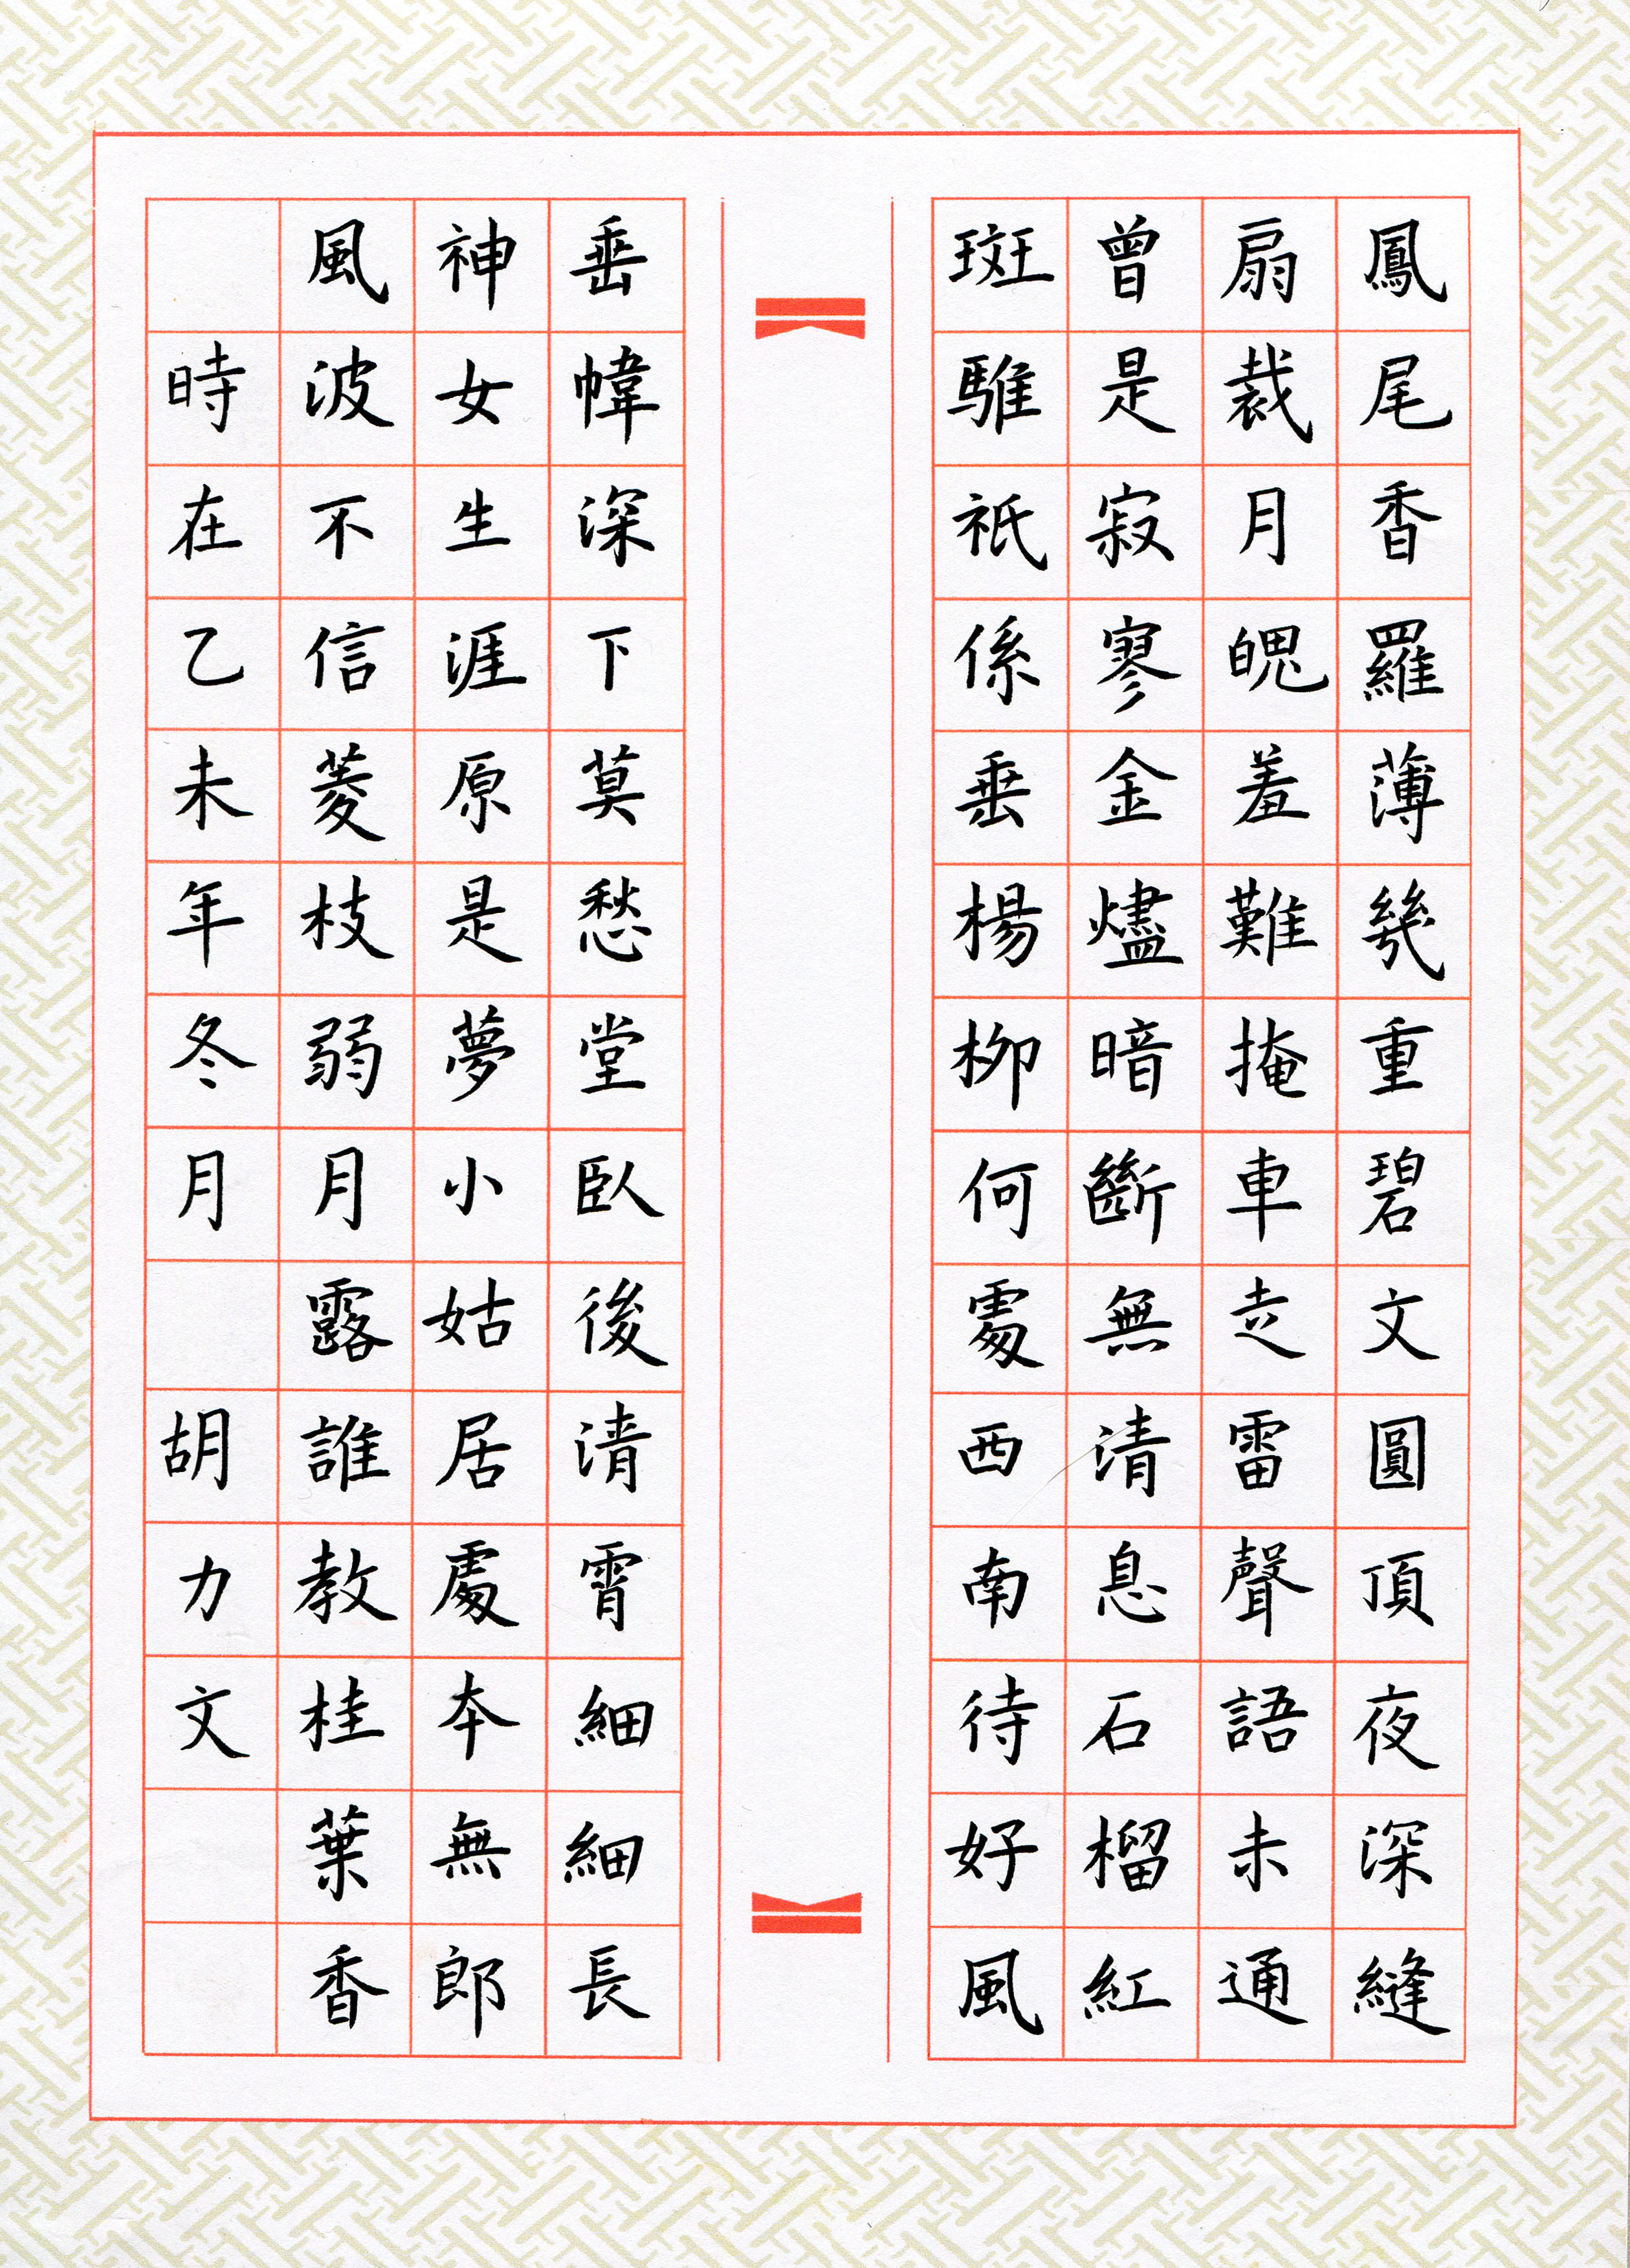 鳳尾香羅薄幾重碧文圓頂夜深縫
扇裁月魄羞難掩車走雷聲語未通
曾是寂寥金燼暗斷無清息石榴紅
斑騅祇係垂楊柳何處西南待好風
垂幃深下莫愁堂臥後清宵細細長
神女生涯原是夢小姑居處本無郎
風波不信菱枝弱月露誰教桂葉香
時在乙未年冬月 胡力文